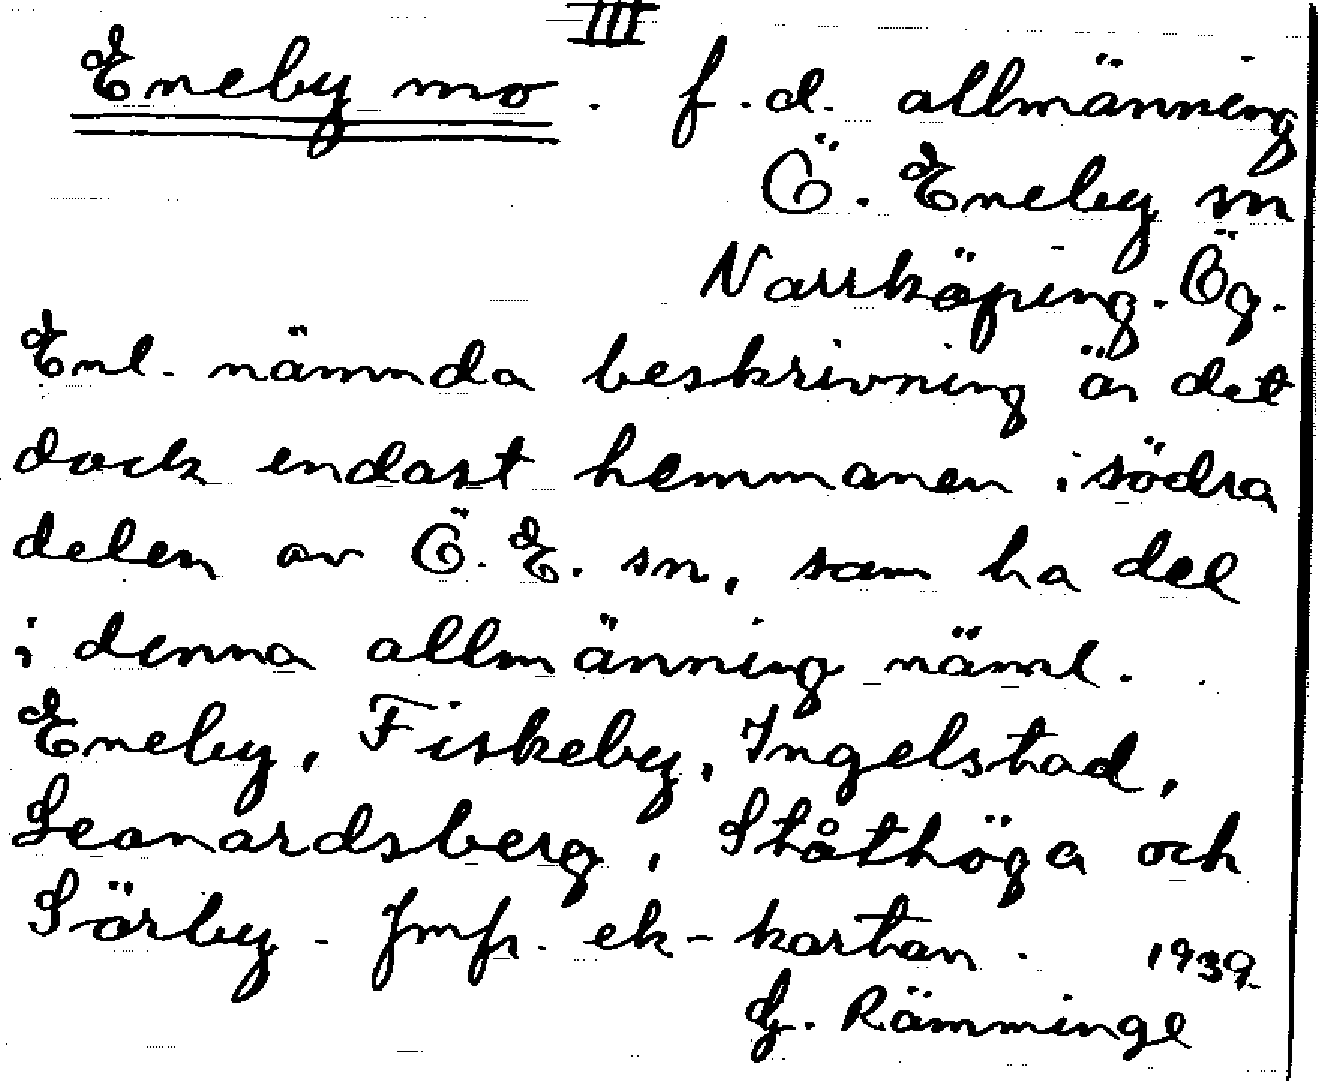 III
Eneby mo. f.d. allmänning
Ö. Eneby sn
Norrköping. Ög.
Enl. nämnda beskrivning är det
dock endast hemmanen i södra
delen av Ö. E. sn, som ha del
i denna allmänning näml.
Eneby, Fiskeby, Ingelstad,
Leonardsberg, Ståthöga och
Sörby. Jmfr. ek-kartan. 1939
G. Rämminge